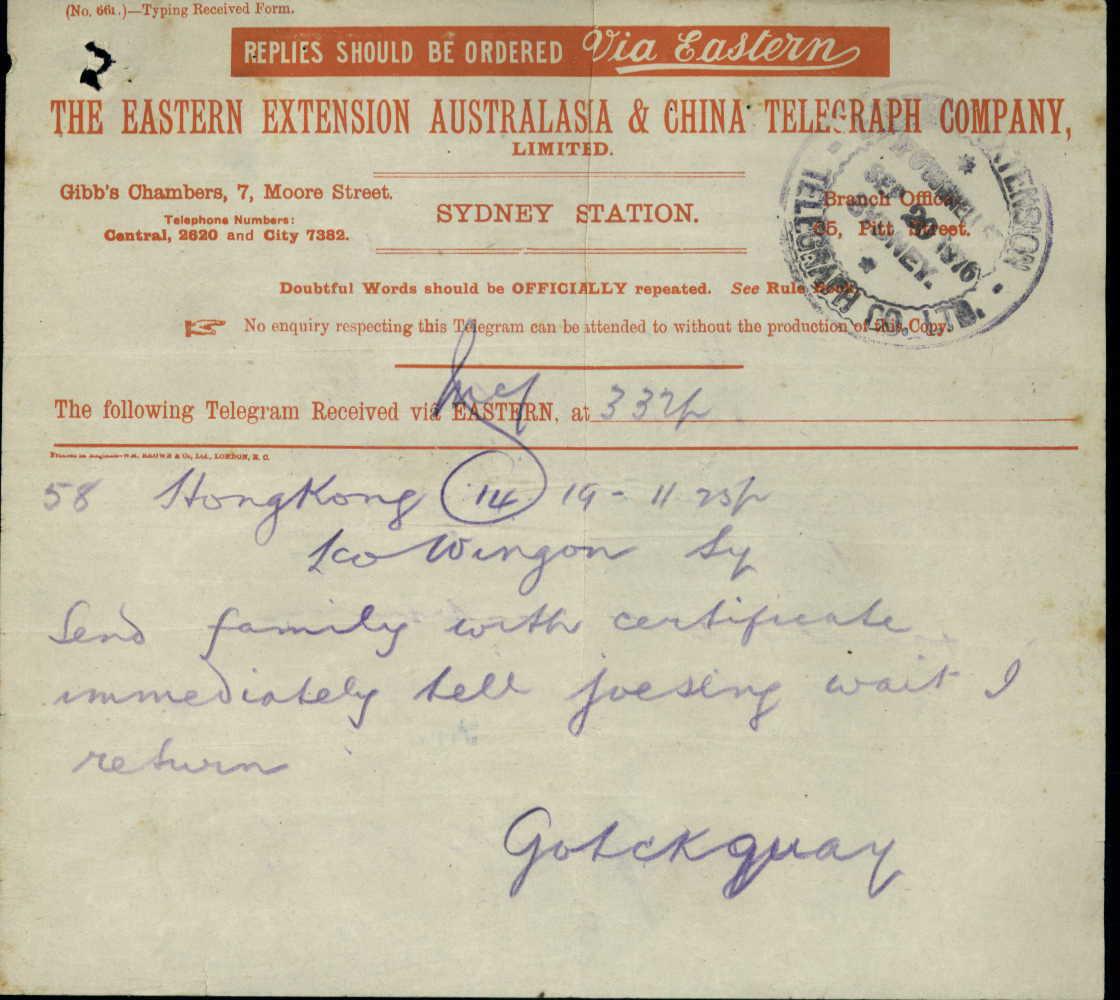 (No. 661.)—Typing Received Form.
REPLIES SHOULD BE ORDERED Via Eastern
THE EASTERN EXTENSION AUSTRALASIA & CHINA TELEGRAPH COMPANY,
LIMITED.
Gibb's Chambers, 7, Moore Street.
Telephone Numbers:
Central, 2620 and City 7382.
SYDNEY STATION.
Branch Office
65, Pitt Street.
EXTENSION
TELEGRAPH CO. LTD.
SEP 20 1916
SYDNEY.
Doubtful Words should be OFFICIALLY repeated. See Rule Book.
No enquiry respecting this Telegram can be attended to without the production of this Copy.
The following Telegram Received via EASTERN, at 332p
58 HongKong 14 19 - 11 25p
Wingon Sy
Send family with certificate
immediately tell joesing wait I
return
Gotckquay